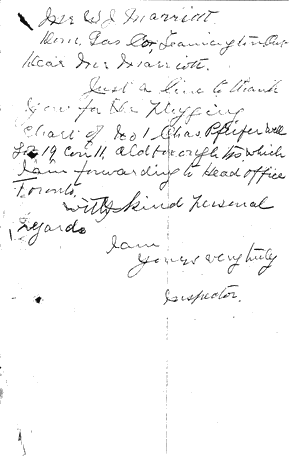 Mr W J Marriott.
Dom. Gas Co, Leamington Ont
Dear Mr Marriott.
Just a line to thank
you for the Plugging
Chart of No 1 Chas Pfeifer Well
Lot 19 Con 11, Aldborough Tp which
I am forwarding to Head office
Toronto.
With kind personal
regards
I am
yours very truly
Inspector.